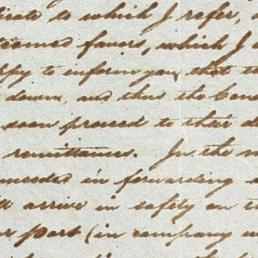 to which I refer,
esteemed favors, which I
to inform you, that th
down, and then the bene
soon proceed to their d
remittances. In the m
succeeded in forwarding
arrive in safety on th
port (in company w